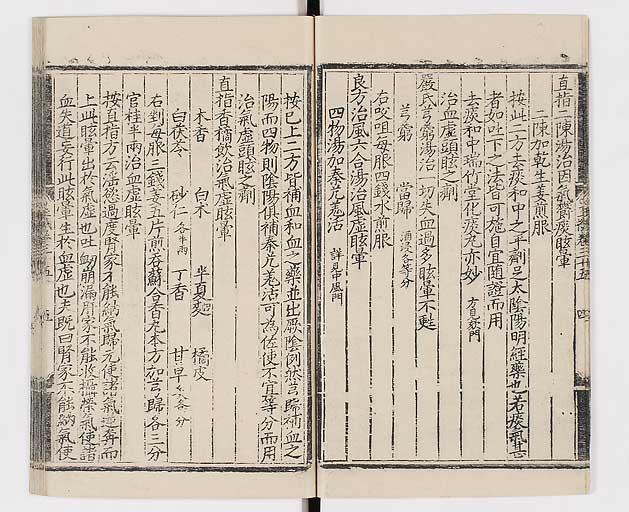 直指二陳湯治因氣鬱痰眩暈
二陳加乾生姜煎服
按此二方去痰和中之平劑足太陰陽明經藥也若痰氣甚
者如吐下之法皆可施自宜隨證而用
去痰和中瑞竹堂化痰丸亦妙 方見欬門
治血虛頭眩之劑
嚴氏芎窮湯治一切失血過多眩暈不甦
芎窮 當歸 酒浸各等分
右咬咀每服四錢水煎服
良方治風六合湯治風虛眩暈
四物湯加秦艽羗活 詳見中風門
按已上二方皆補血和血之藥並出厥陰例然芎歸補血之
陽而四物則陰陽俱補秦艽羗活可為佐使不宜等分而用
治氣虛頭眩之劑
直指香橘飲治氣虛眩暈
木香 白术 半夏麴 橘皮
白茯苓 砂仁 各半兩 丁香 甘草 各分
右剉每服三錢姜五片煎吞蘇合香丸本方加芎歸各三分
官桂半兩治血虛眩暈
按直指方云淫慾過度腎家不能納氣歸元使諸氣逆奔而
上此眩暈出於氣虛也吐衂崩漏肝家不能收攝榮氣使諸
血失道妄行此眩暈生於血虛也夫既曰腎家不能納氣使